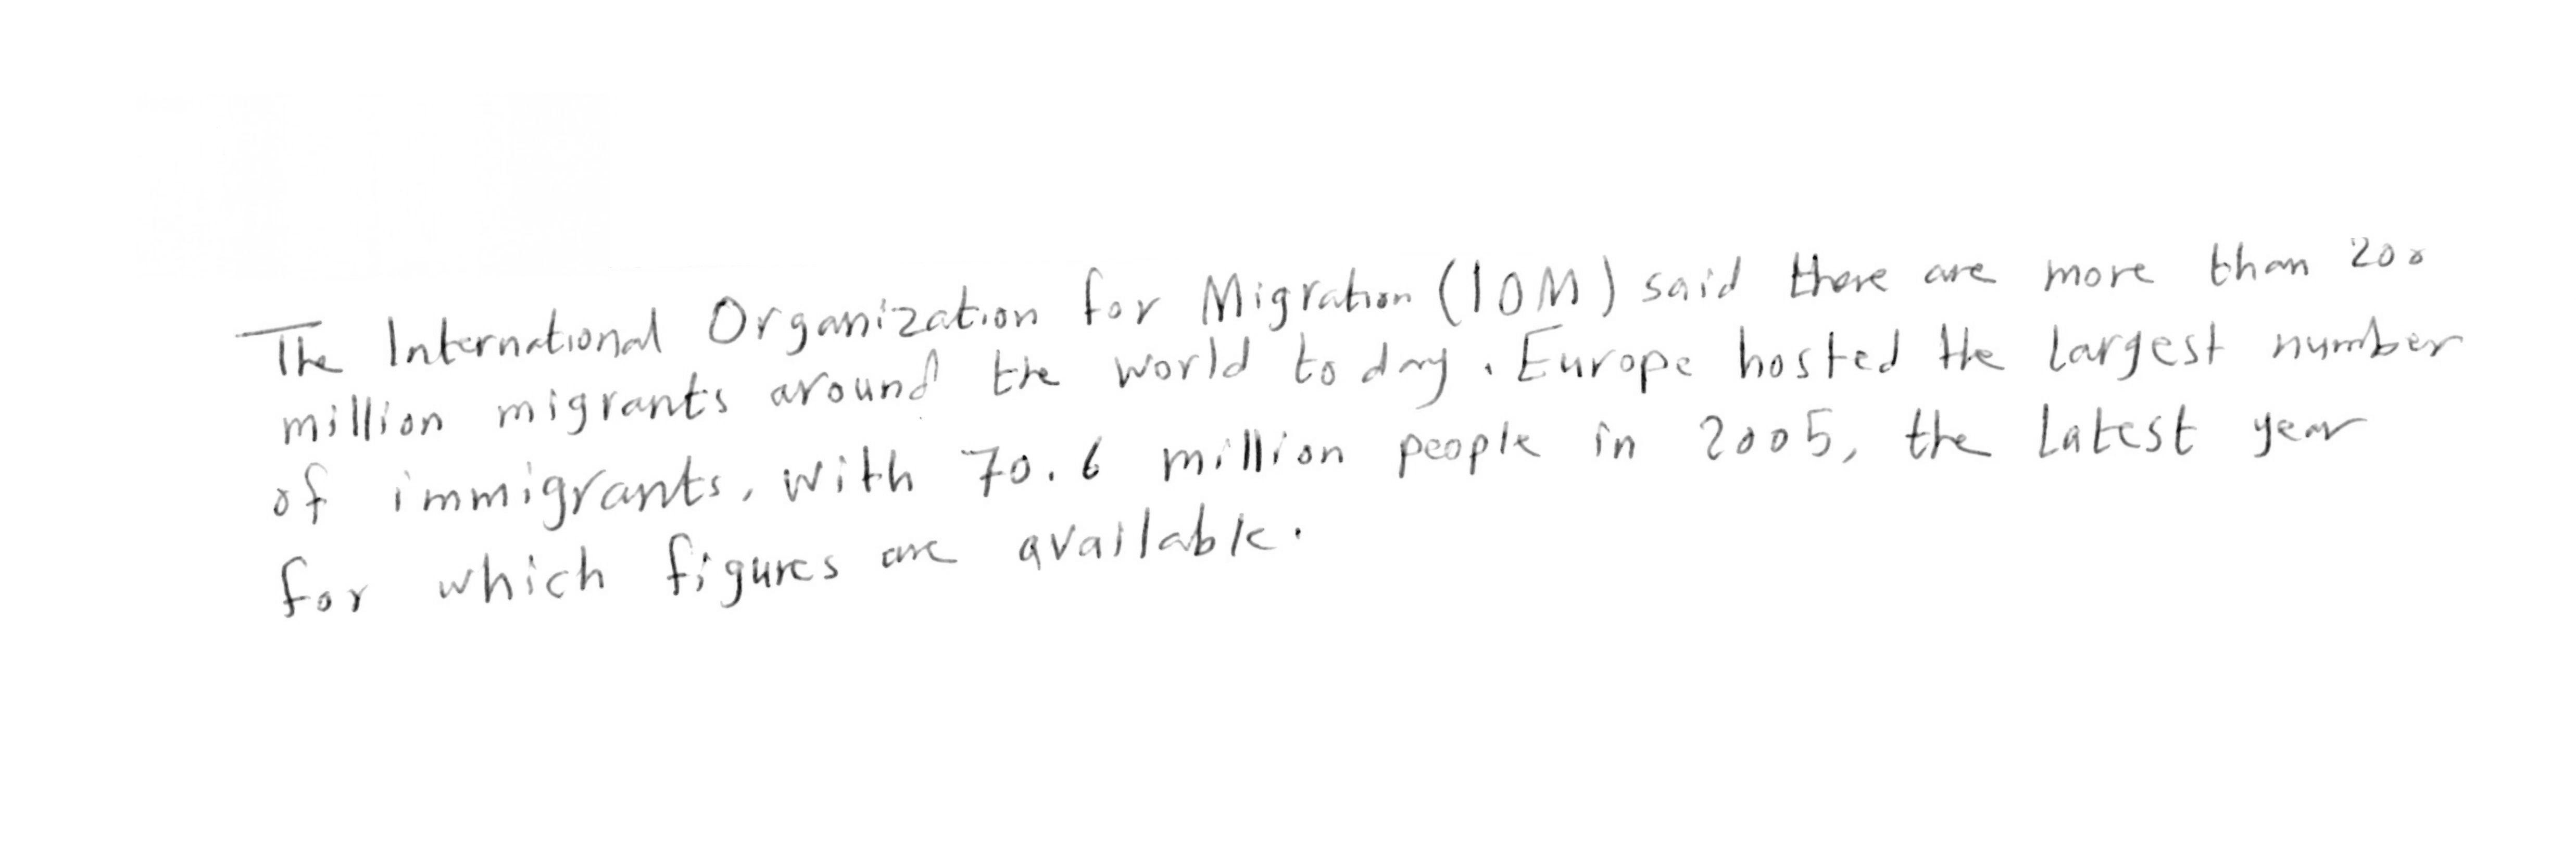 The International Organization for Migration (IOM) said there are more than 200
million migrants around the world today. Europe hosted the largest number
of immigrants, with 70.6 million people in 2005, the latest year
for which figures are available.